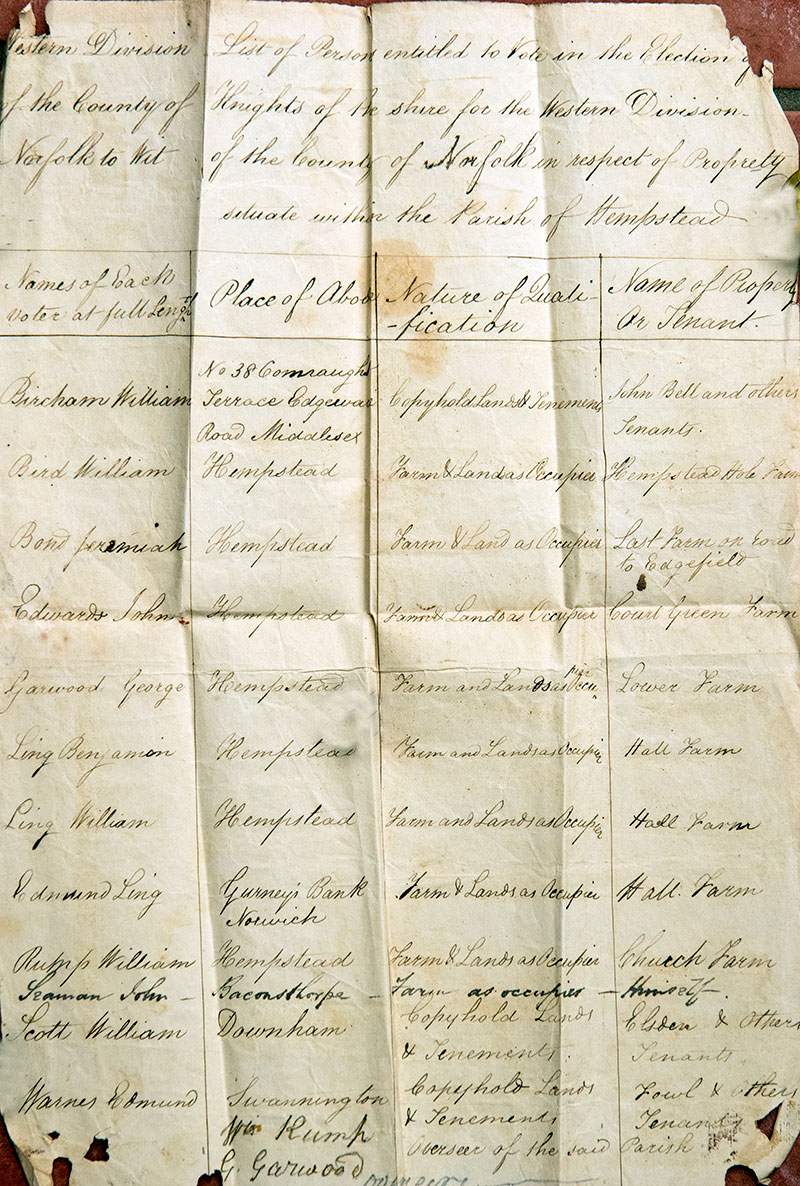 Western Division List of Person entitled to Vote in the Election of
of the County of Knights of the shire for the Western Division
Norfolk to Wit of the County of Norfolk in respect of Proprety
situate within the Parish of Hempstead
Names of Each Place of Abode Nature of Quali- Name of Property
voter at full Length -fication Or Tenant.
No 38 Connaught
Bircham William Terrace Edgewar Copyhold Lands & Tenements John Bell and others
Road Middlesex Tenants.
Bird William Hempstead Farm & Lands as Occupier Hempstead Hole Farm
Bond Jeremiah Hempstead Farm & Land as Occupier Last Farm on road
to Edgefield
Edwards John Hempstead Farm & Lands as Occupier Court Green Farm
Garwood George Hempstead Farm and Lands as Occupier Lower Farm
Ling Benjamin Hempstead Farm and Lands as Occupier Hall Farm
Ling William Hempstead Farm and Lands as Occupier Hall Farm
Edmund Ling Gurney's Bank Farm & Lands as Occupier Hall. Farm
Norwich
Rump William Hempstead Farm & Lands as Occupier Church Farm
Seaman John - Baconsthorpe - Farm as occupier - Himself.
Scott William Downham Copyhold Lands Elsden & Others
& Tenements. Tenants.
Warnes Edmund Swannington Copyhold Lands Fowl & others
& Tenements Tenants
Wm Rump
Overseer of the said Parish
G. Garwood